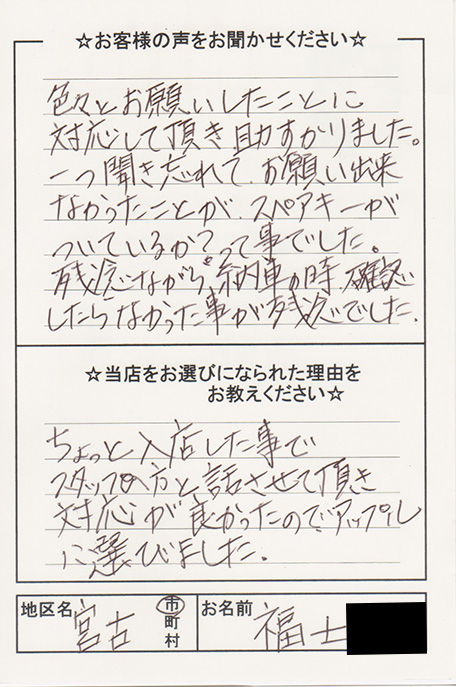 ☆お客様の声をお聞かせください☆
色々とお願いしたことに
対応して頂き助すかりました。
一つ聞き忘れて、お願い出来
なかったことが、スペアキーが
ついているか?って事でした。
残念ながら、納車の時、確認
したらなかった事が残念でした。
☆当店をお選びになられた理由を
お教えください☆
ちょっと入店した事で
スタッフの方と、話させて頂き
対応が良かったので、アップル
に選びました。
地区名 宮古 市 町 村 お名前 福士